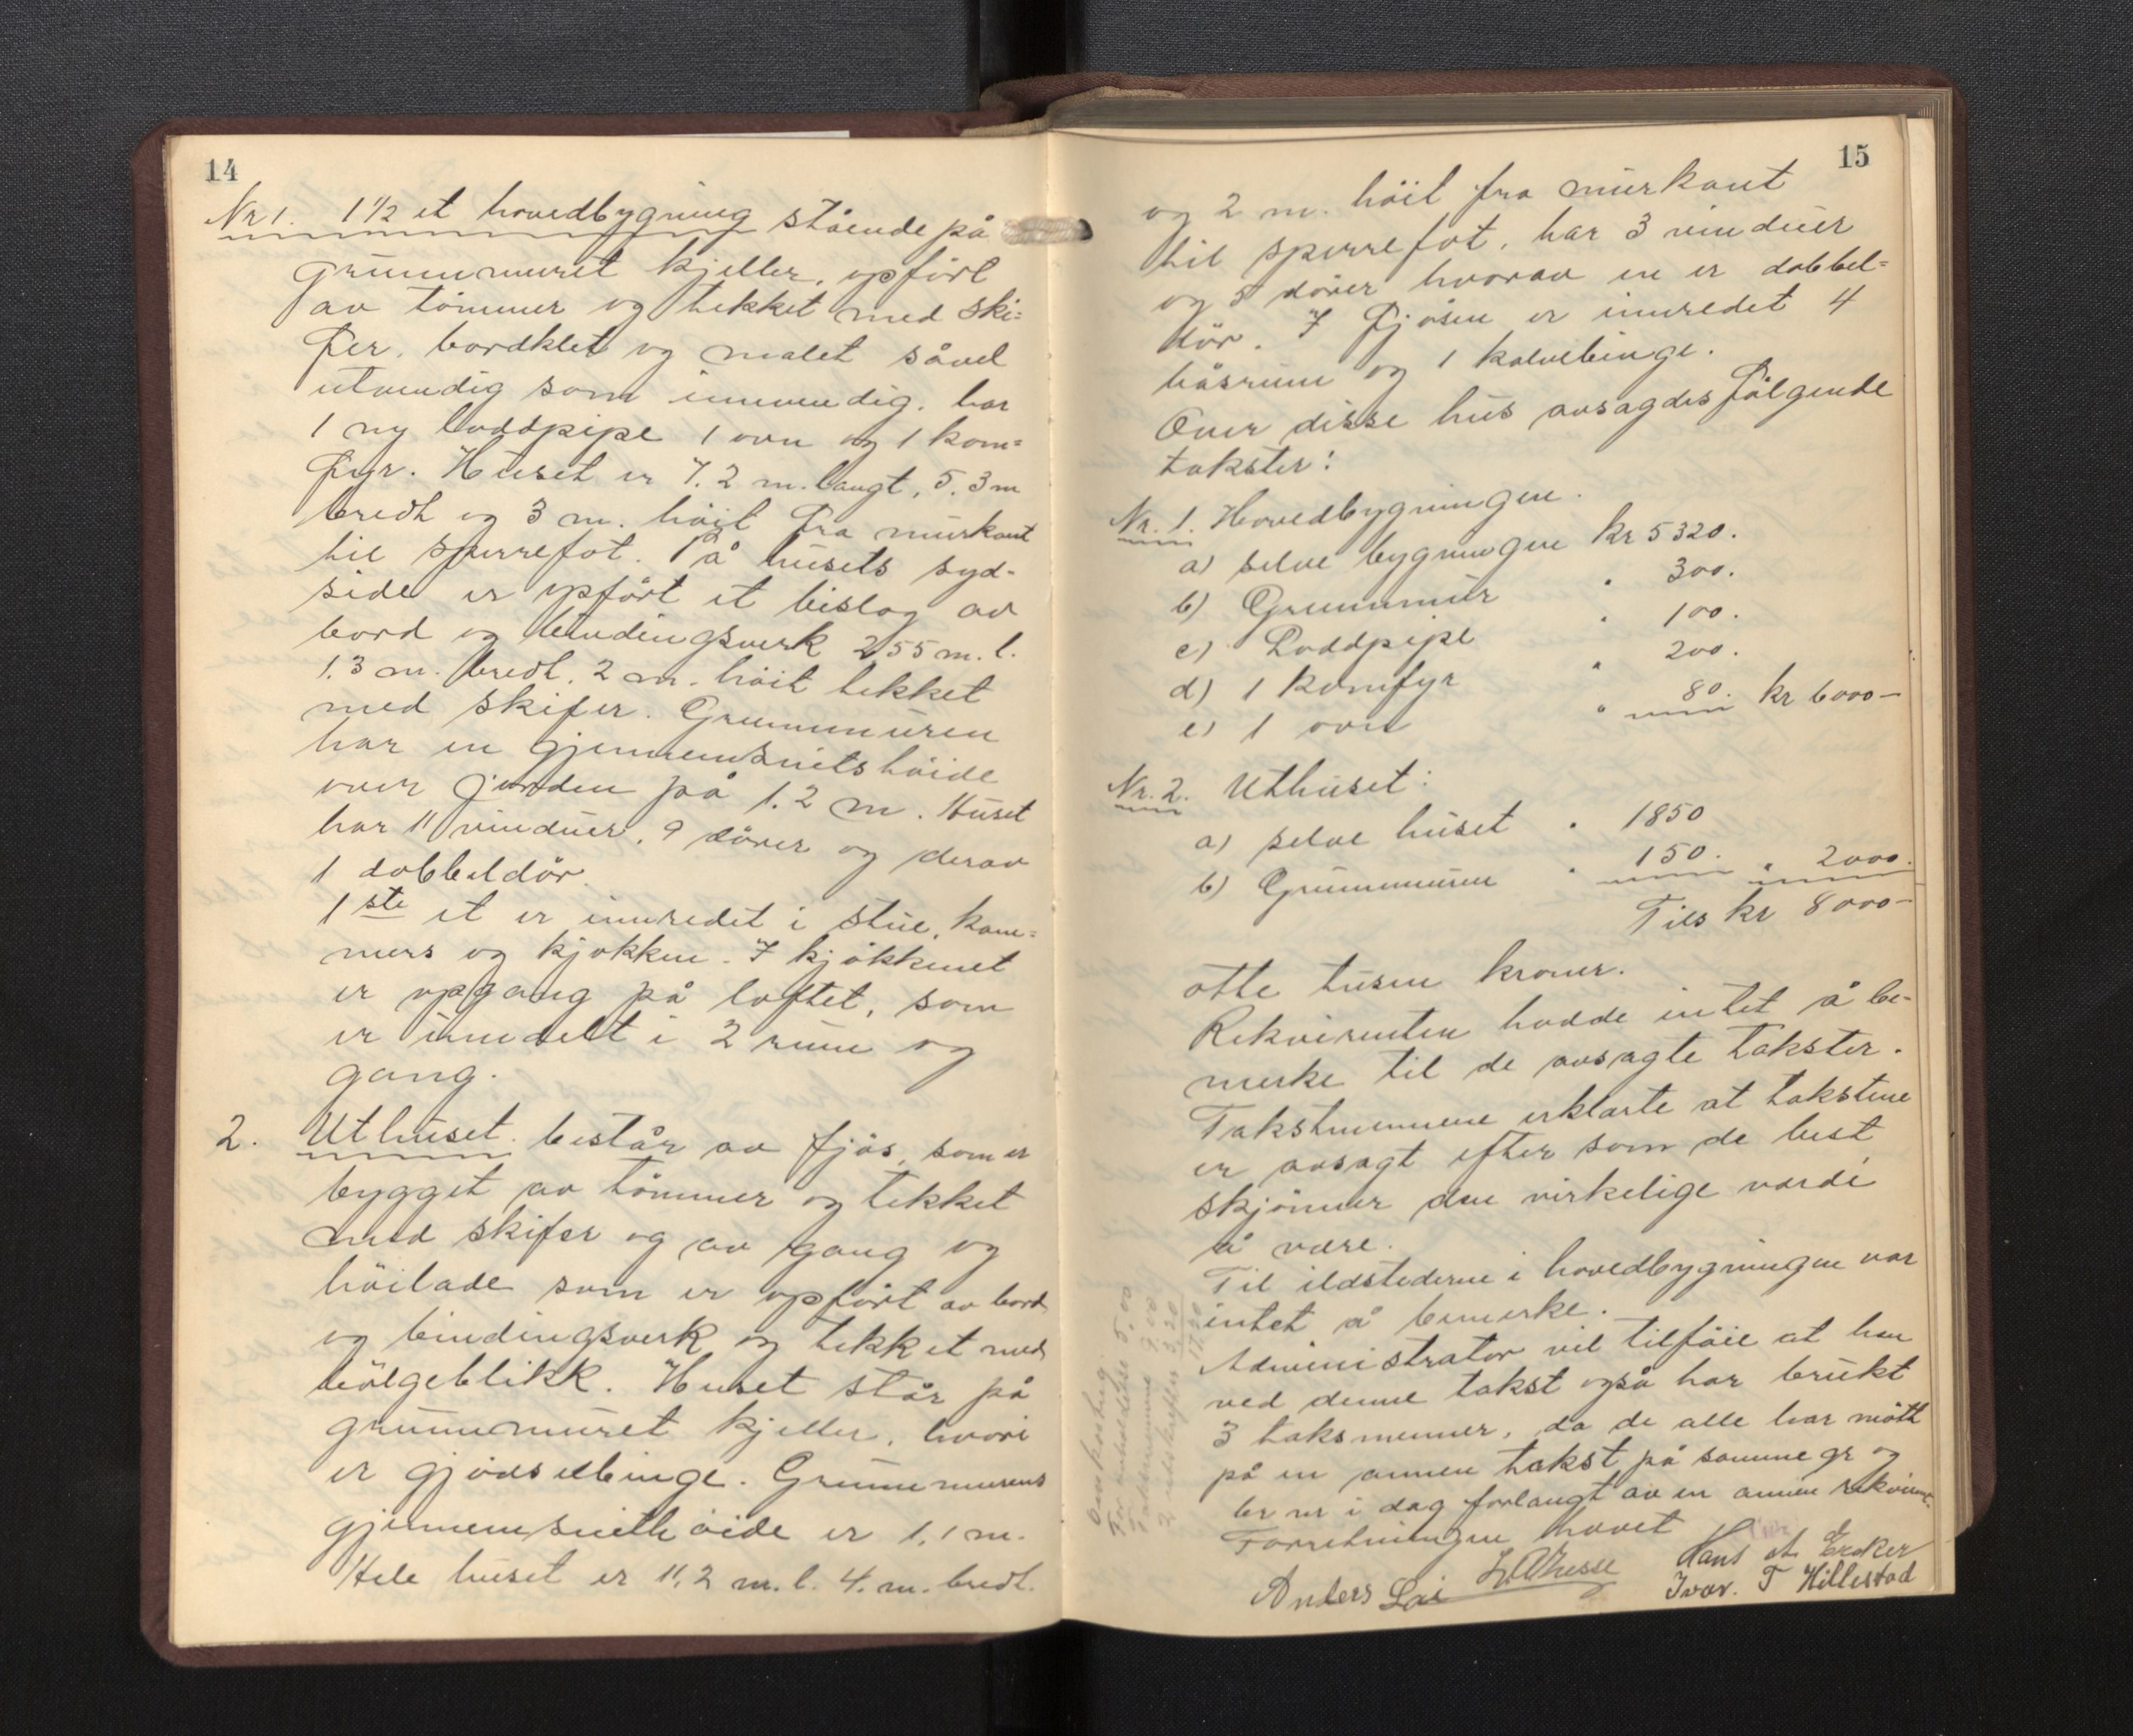 14
Nr 1. 1 1/2 et hovedbygning stående på
grunnmuret kjeller, opført
av tømmer og tekket med ski=
fer, bordklet og malet såvel
utvendig som innvendig, har
1 ny loddpipe 1 ovn og 1 kom=
fyr. Huset er 7.2 m. langt, 5.3 m
bredt og 3 m. høit fra murkant
til sperrefot. På husets syd-
side er opført et bislag av
bord og bindingsverk 2,55 m. l.
1.3 m. bredt. 2 m. høit tekket
med skifer. Grunnmuren
har en gjennemsnitshøide
over jorden på 1.2 m. Huset
har 11 vinduer, 9 dører og derav
1 dobbeldør.
1ste et er innredet i stue, kam=
mers og kjøkken. I kjøkkenet
er opgang på loftet, som
er inndelt i 2 rum og
gang.
2. Uthuset. består av fjøs, som er
bygget av tømmer og tekket
med skifer og av gang og
høilade som er opført av bord
og bindingsverk og tekket med
bølgeblikk. Huset står på
grunnmuret kjeller, hvori
er gjødselbinge. Grunnmurens
gjennemsnitthøide er 1,1 m.
Hele huset er 11,2 m. l. 4. m. bredt.
15
og 2 m. høit fra murkant
til sperrefot, har 3 vinduer
og 5 dører hvorav en er dobbel=
dør. I fjøsen er innredet 4
båsrum og 1 kalvebinge.
Over disse hus avsagdes følgende
takster:
Nr. 1. Hovedbygningen.
a) selve bygningen kr 5320.
b) Grunnmur " 300.
c) Loddpipe " 100.
d) 1 komfyr " 200.
e) 1 ovn " 80. kr 6000-
Nr. 2. Uthuset:
a) selve huset " 1850
b) Grunnmuren " 150. " 2000.
Tils kr 8000-
otte tusen kroner.
Rekvirenten hadde intet å be-
merke til de avsagte takster.
Takstmennene erklærte at takstene
er avsagt efter som de best
skjønner den virkelige værdi
å være.
Til ildstederne i hovedbygningen var
intet å bemerke.
Administrator vil tilføie at han
ved denne takst også har brukt
3 taksmenner, da de alle har møtt
på en annen takst på samme gr og
br nr i dag forlangt av en annen rekvirent.
Forretningen hevet
Anders Lai Hans A Ekeker
Ivar. T Hillestad
Omkostning.
Takstmennene 9.00
2 utskrifter 3.20